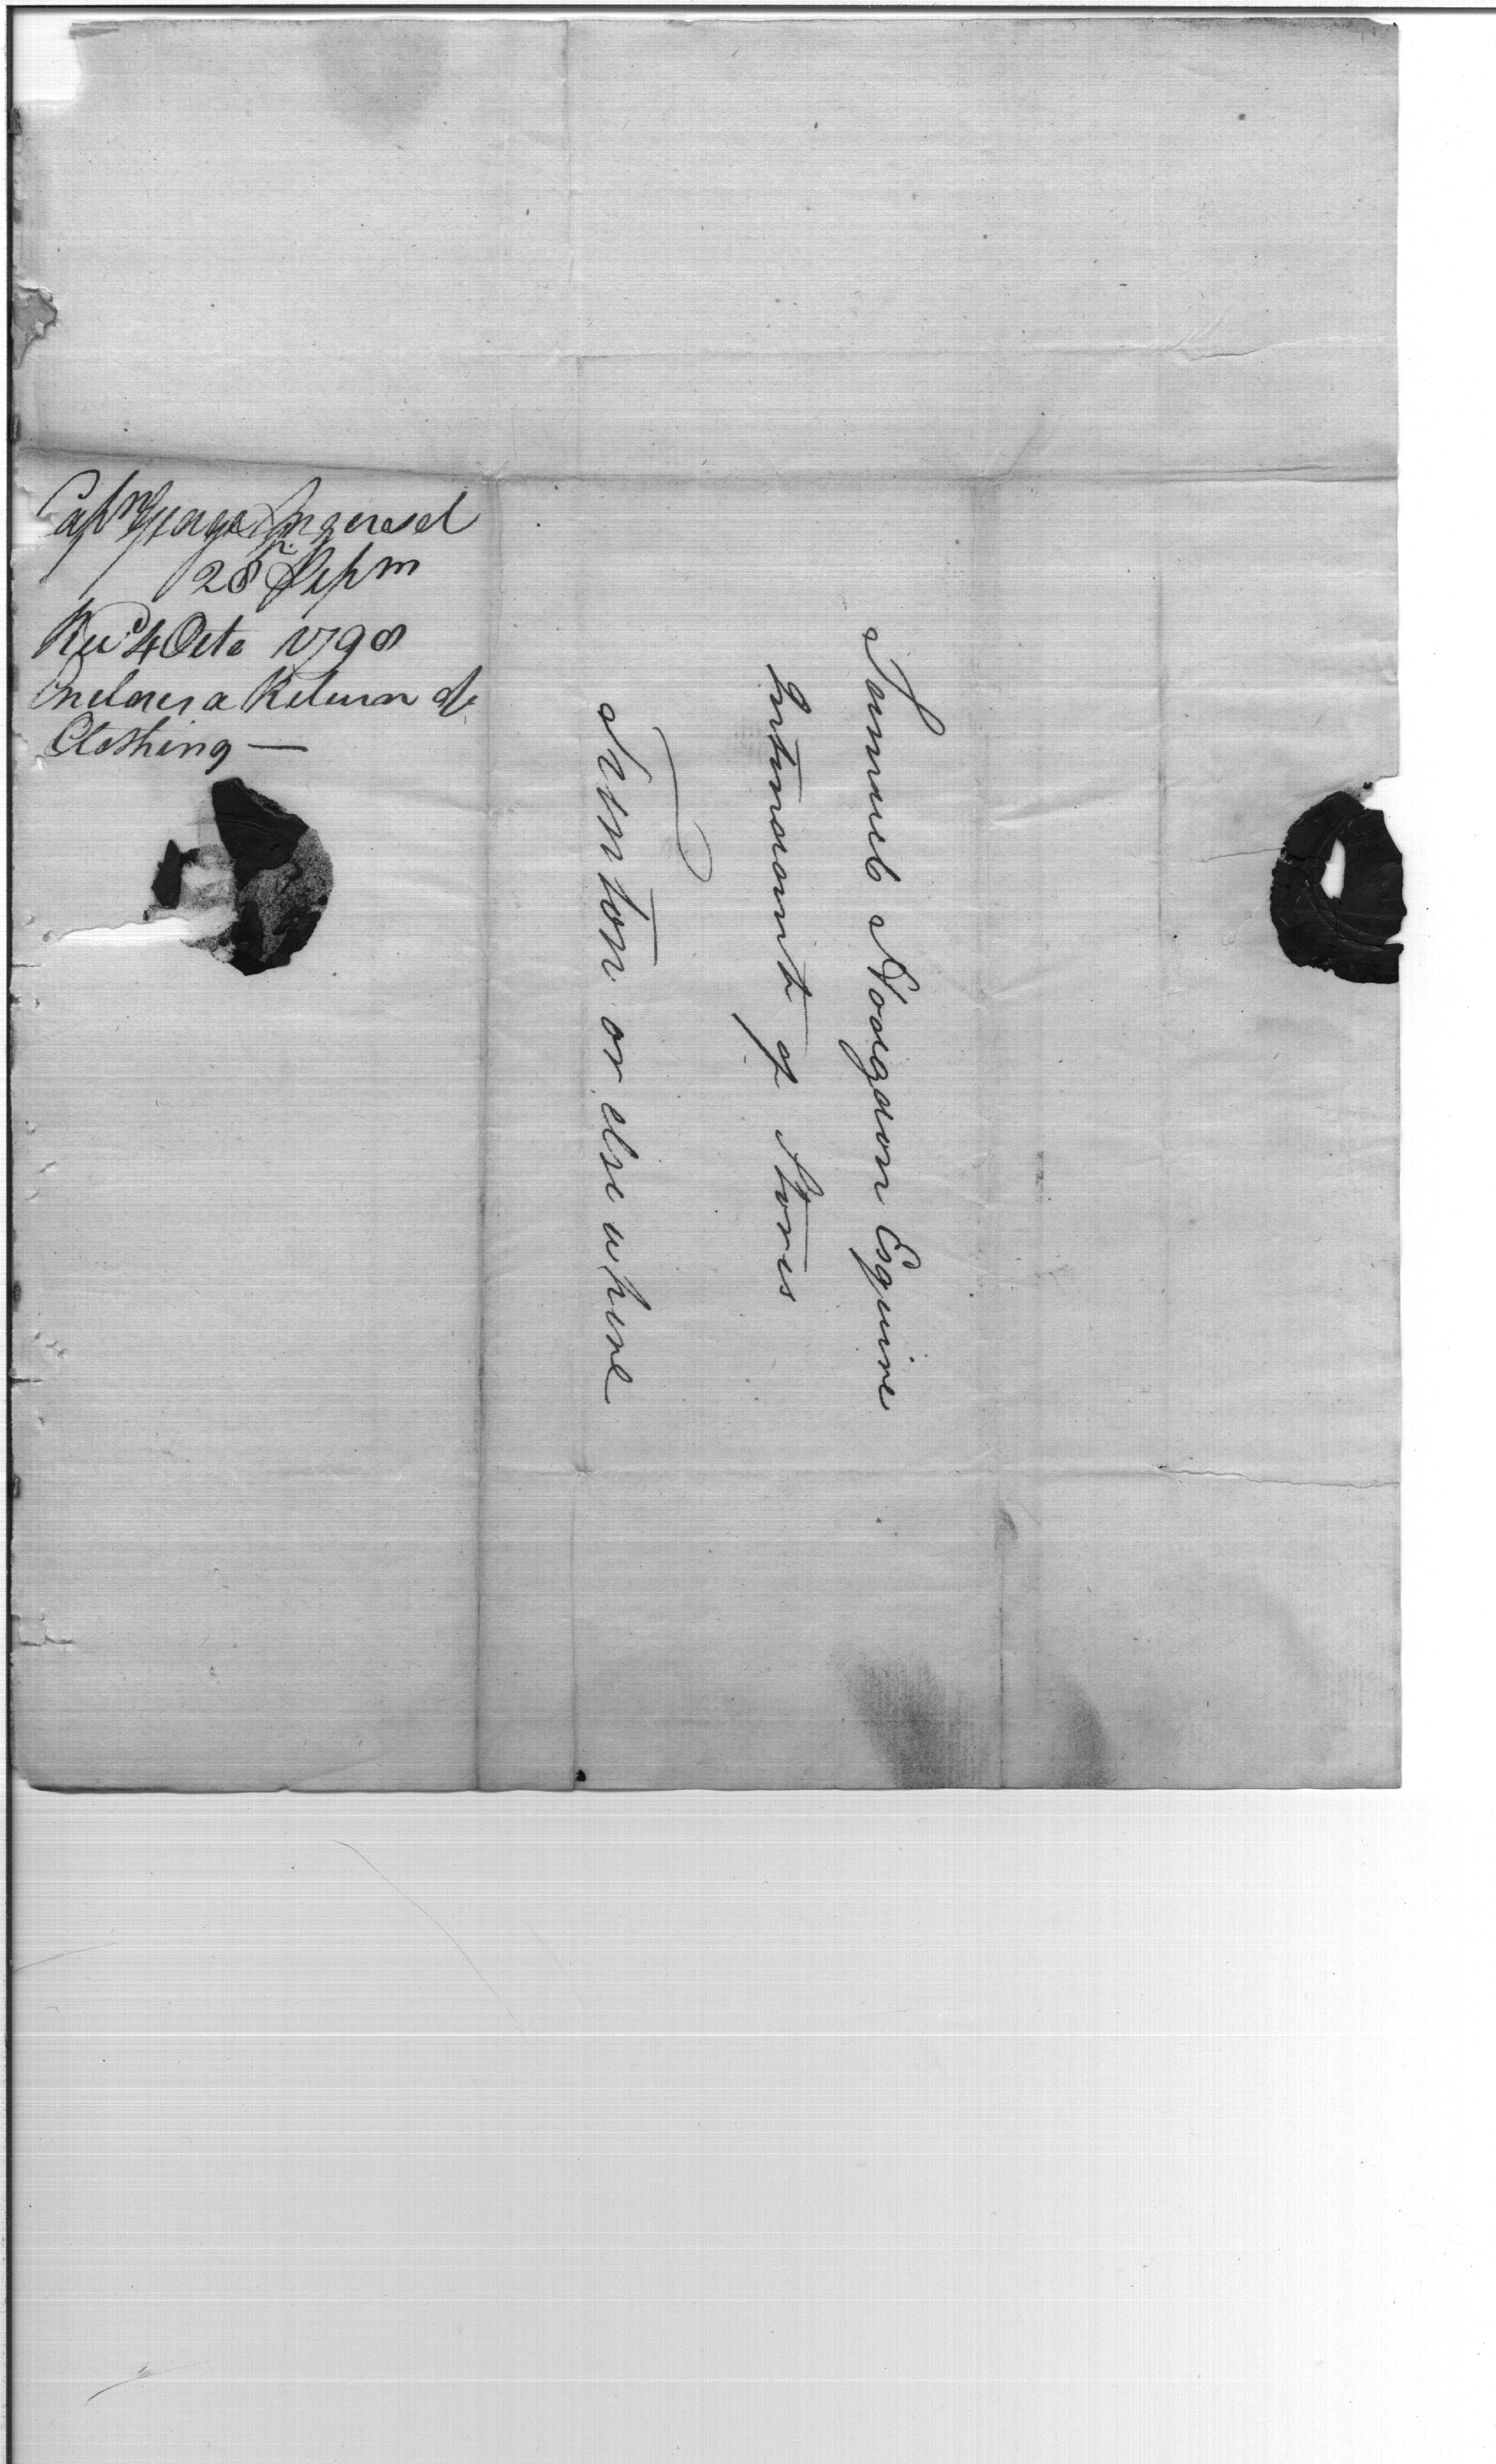 Capt George Ingersol
28th Sepm
Recd 4 Octo 1798
Incloses a Return of
Clothing —
Samuel Hodgdon Esquire
of Stores
Trenton or else where